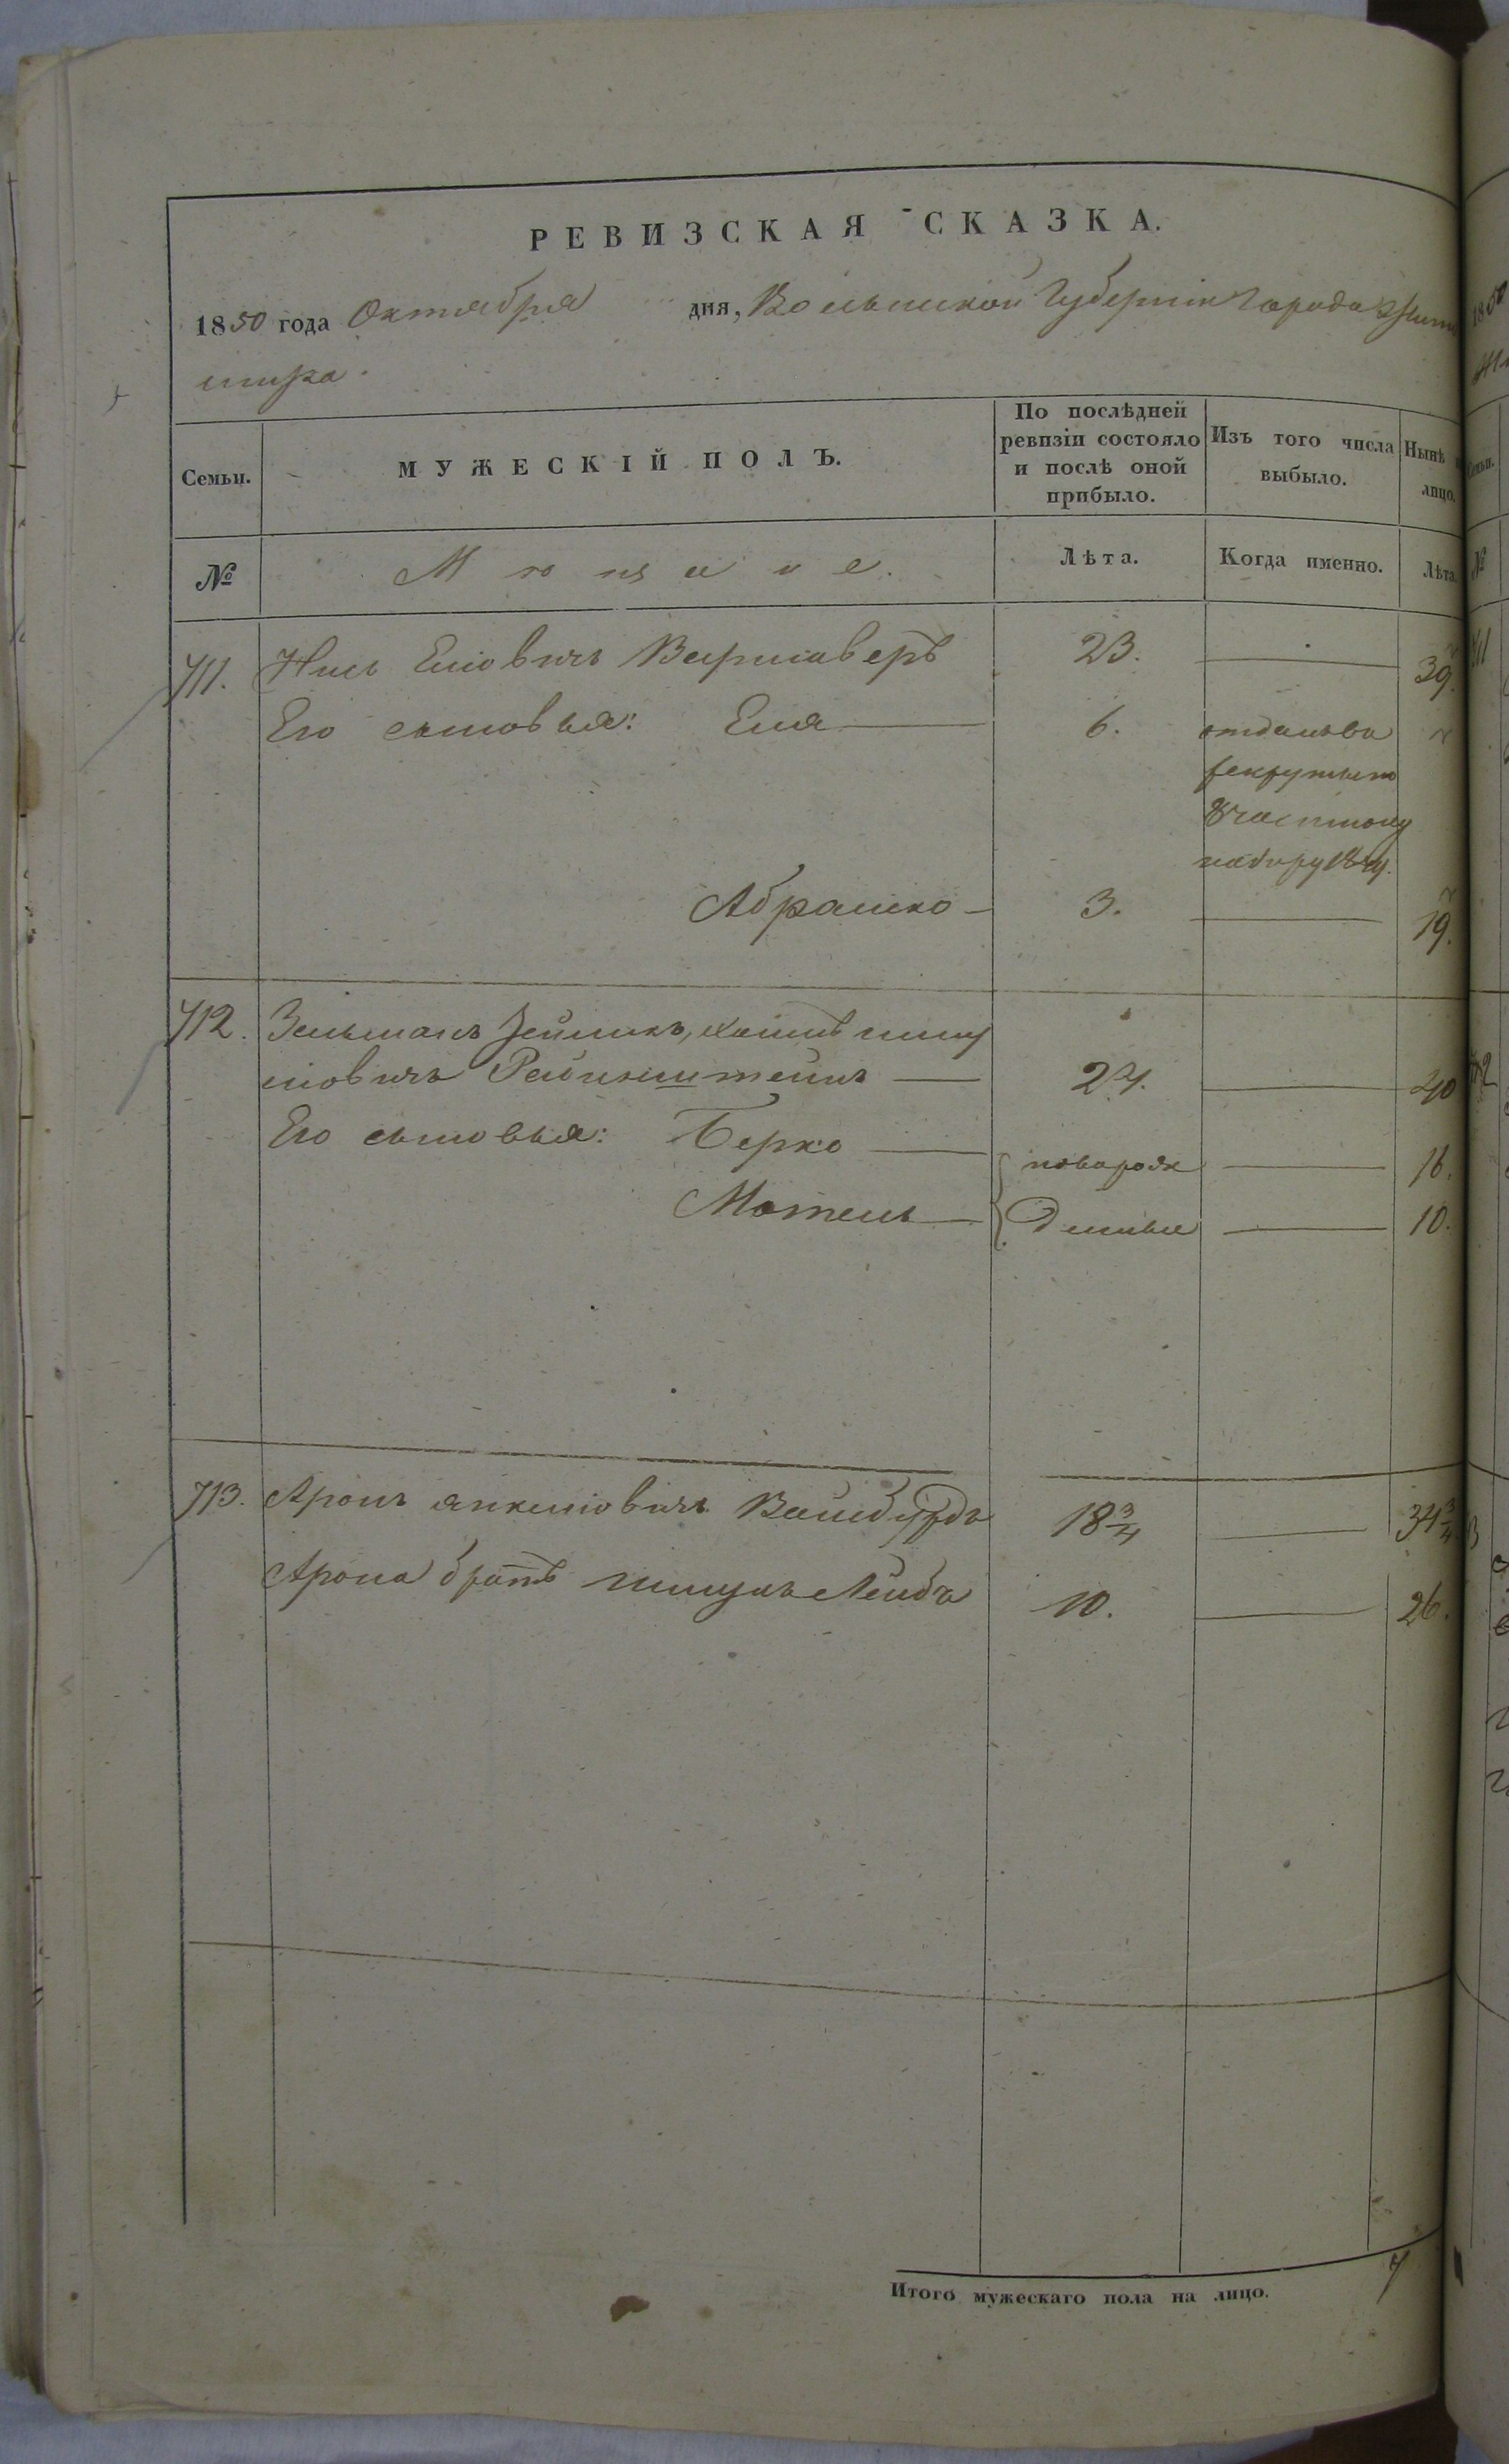 РЕВИЗСКАЯ СКАЗКА.
1850 года Октября дня, Волынской Губерніи Города Жито
мира.
Семьи. МУЖЕСКІЙ ПОЛЪ. По послѣдней ревизіи состояло и послѣ оной прибыло. Изъ того числа выбыло. Нынѣ лицо.
№ Мѣщане. Лѣта. Когда именно. Лѣта.
711. Еліовичъ Варшаверъ 23. 39.
Его сыновья: Еля 6. отданъ въ
рекруты по
8 частному
набору
Абрамко 3. 19.
712. Зельманъ
Рейнштейнъ 24. 40
Его сыновья: Берко новорож 16.
Мотель денные 10.
713. Аронъ Янкеліовичъ Вайнбурдъ 18 3/4 34 3/4
Арона братъ Лейба 10. 26.
Итого мужескаго пола на лицо. 7